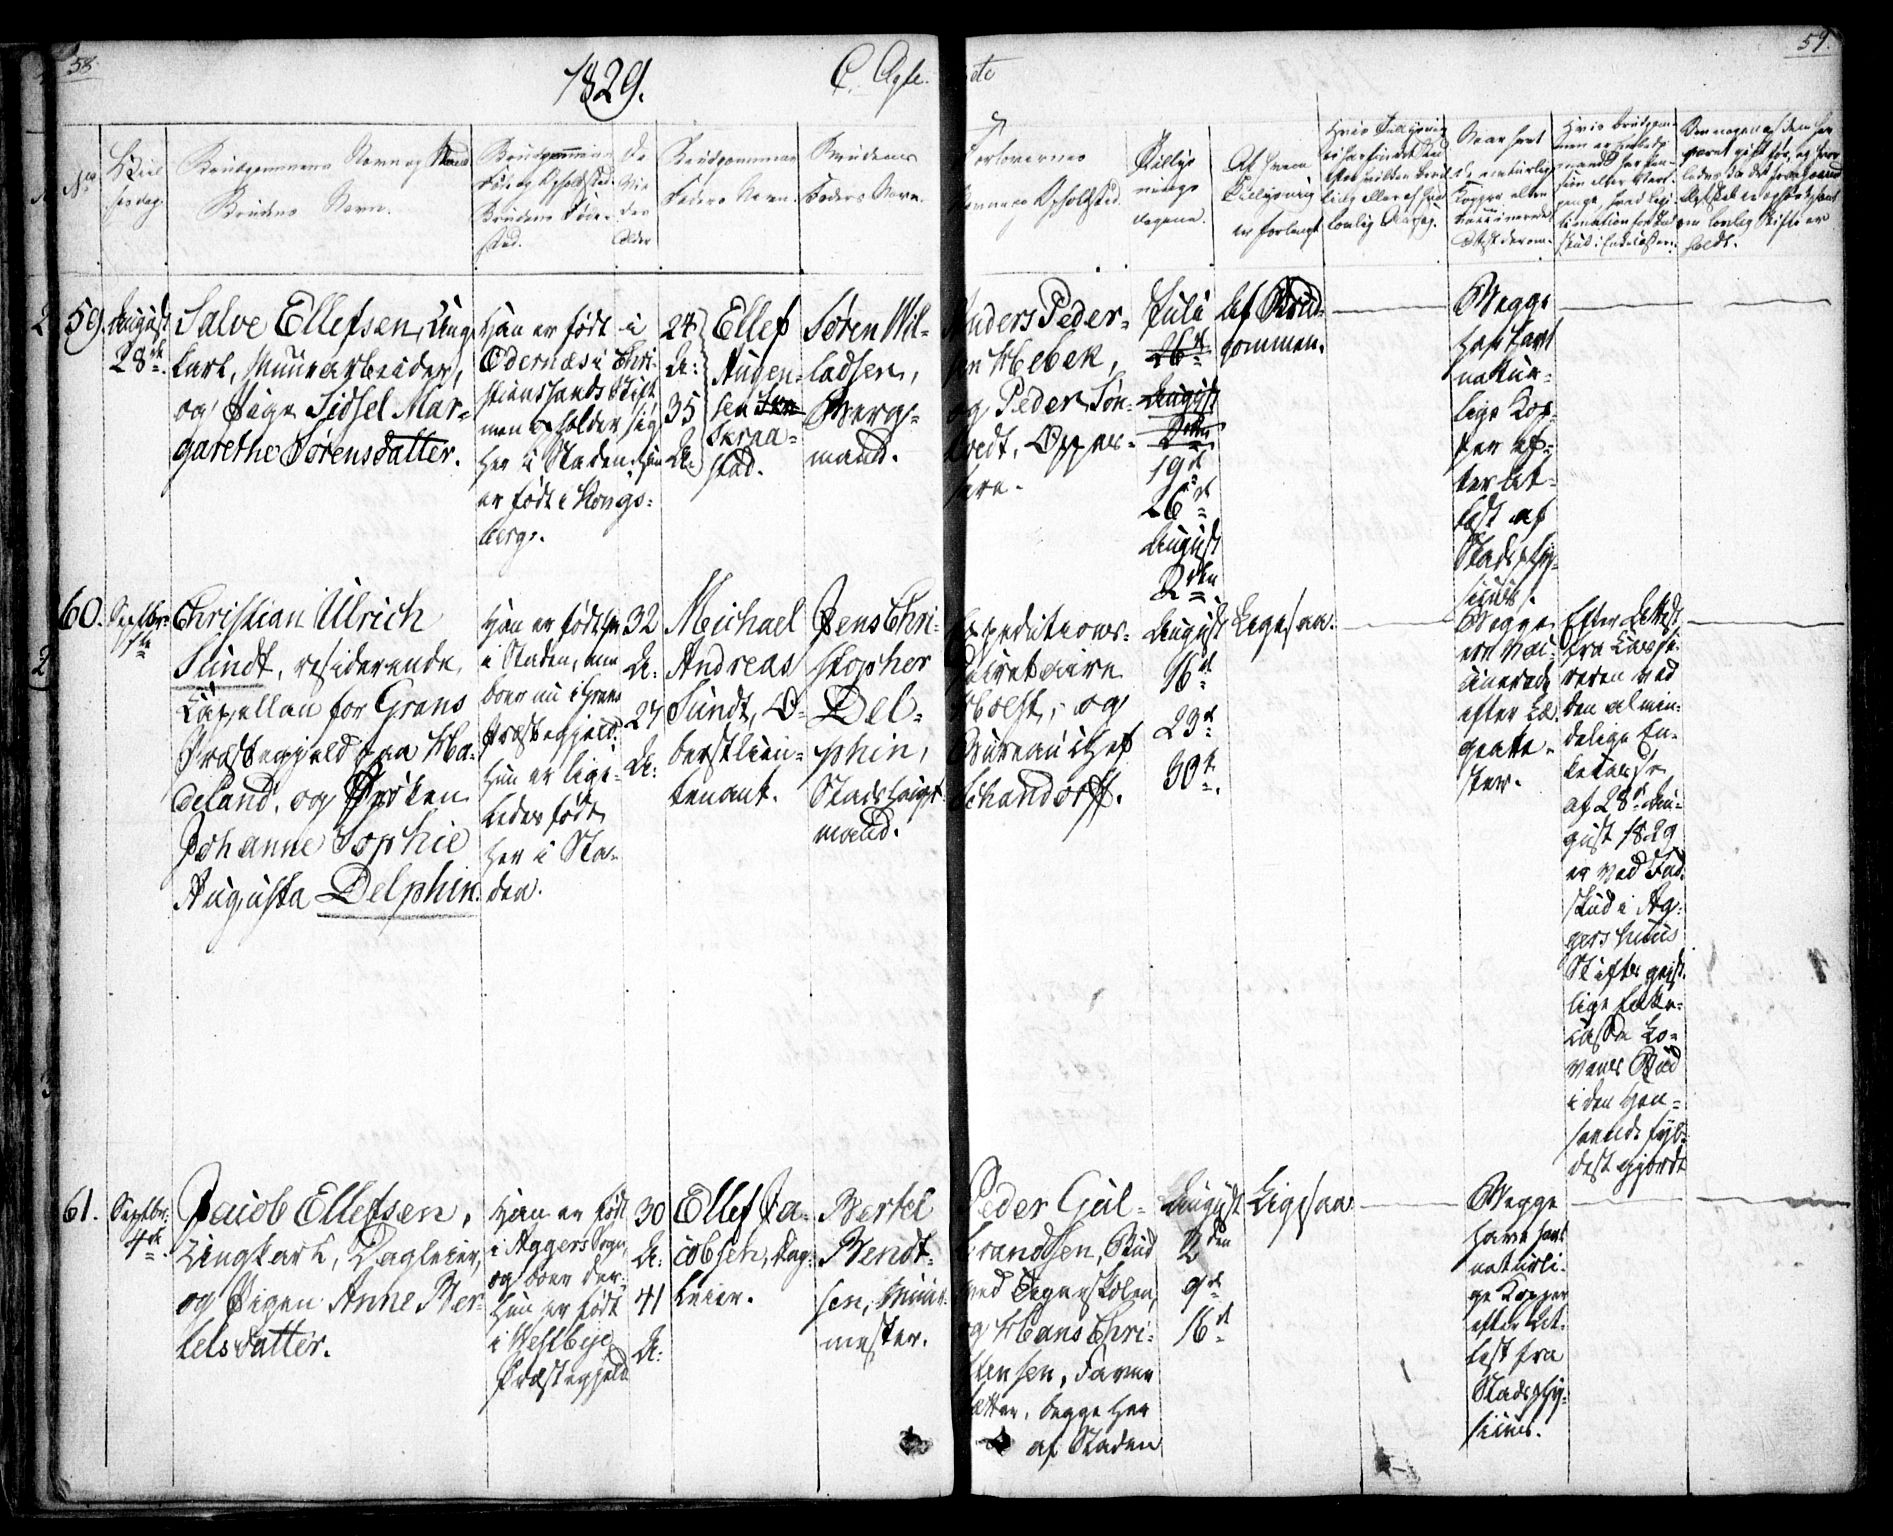 58.
1829.
C. Ægte
59.
No
Vielsesdag.
Brudgommens Navn og Stand
Brudens Navn.
Brudgommens
Føde og Opholdsted.
Brudens Fødested.
Brudgommens
Faders Navn.
Brudens
Faders Navn.
Forlovernes
Navne og Opholdsted.
Tillysningsdagene.
Af hvem
Tillysning
er forlangt
59.
August
28de
Salve Ellefsen, Ungkarl, Muurarbeider,
og Pige Sidsel Margarethe Sørensdatter.
Han er født i
Ødernæs i Christiansands Stift
men opholder sig
her i Staden. Hun
er født i Kongsberg.
24
A:
35
A:
Ellef
Augensen
Skraastad.
Søren Willadsen,
Bergmand.
Anders Pedersen Hebek,
og Peder Sønvedt, Oppassere.
Juli
26de
August
2den
19de
26de
August
2den
Af Brudgommen.
Begge
have havt
naturlige Kopper efter Attest af
Stadsphysicus.
60.
Septbr:
1te
Christian Ulrich
Sundt, residerende
Capellan for Grans
Præstegjeld paa Hadeland, og Frøken
Johanne Sophie
Augusta Delphin.
Han er født her
i Staden, men
boer nu i Grans
Præstegjeld.
Hun er ligeledes født
her i Staden.
32
A:
27
A:
Michael
Andreas
Sundt, Oberstlieutenant.
Jens Christopher
Delphin,
Stadshauptmand.
Expeditions-
Secretaire
Holst, og
Bureauchef
Schandorff.
August
16de
23de
30te
Ligesaa.
Begge
ere vaccinerede
efter Lægeattester.
Efter Attest
fra Cassereren ved
den almindelige Enkekasse
af 28de August 1829
er ved Indskud i Aggershuus
Stifts geistlige Enkecassa Lovens Bud
i den Henseende fyldestgjordt
61.
Septbr:
4de
Jacob Ellefsen,
Ungkarl, Dagleier,
og Pigen Anne Bertelsdatter.
Han er født
i Aggers Sogn,
og boer der.
Hun er født
i Vestbye
Præstegjeld
30
A:
41
A:
Ellef Jacobsen, Dagleier.
Bertel
Bendtsen, Muurmester.
Peder Gulbrandsen, Bud
ved Tegneskolen,
og Hans Christensen, Farver
, begge her
af Staden
August
2den
9de
16de
Ligesaa
Begge
have havt
naturlige Kopper
efter Attest fra
Stadsphysicus.